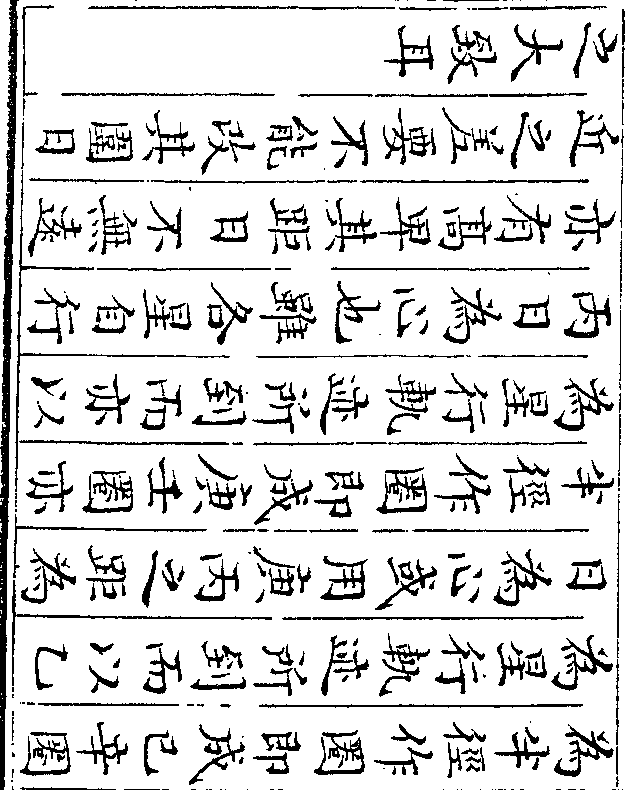 為半徑作圈即成己辛圈
為星行軌迹所到而以乙
日為心或用庚丙之距為
半徑作圈即成庚壬圈亦
為星行軌迹所到而亦以
丙日為心也雖各星自行
亦有高卑其距日不無遠
近之差要不能改其圍日
之大耳